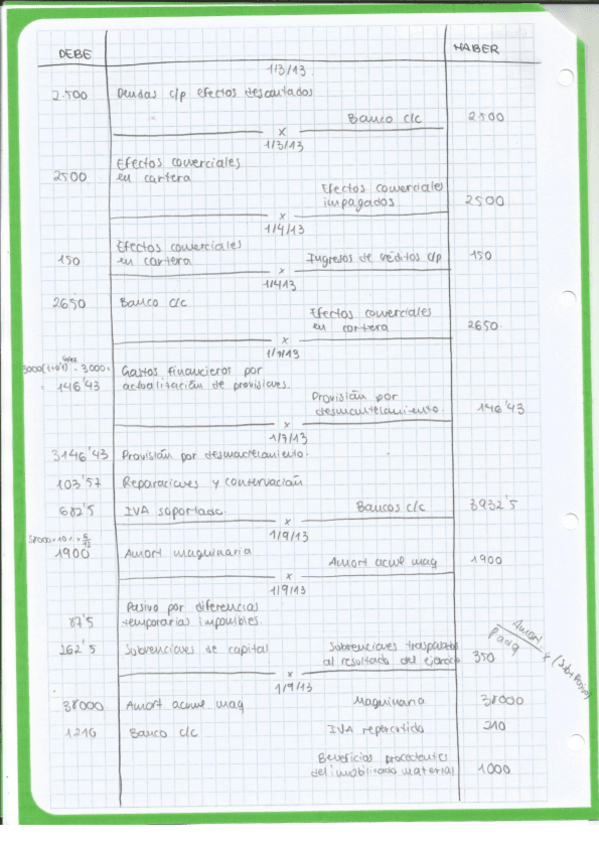 DEBE HABER
1/3/13.
2.500 Deudas c/p efectos descontados
Banco c/c 2500
x
1/3/13
Efectos comerciales
2500 en cartera
Efectos comerciales
impagados 2500
x
1/4/13
Efectos comerciales
150 en cartera Ingresos de créditos c/p 150
x
1/4/13
2650 Banco c/c
Efectos comerciales
en cartera 2650.
x
1/7/13
Gastos financieros por
146'43 actualización de provisiones.
Provisión por
desmantelamiento. 146'43
x
1/7/13
3146'43 Provisión por desmantelamiento.
103'57 Reparaciones y conservación
682'5 IVA soportado. Bancos c/c 3932'5
x
1/9/13
1900 Amort maquinaria
Amort acum maq 1900
x
1/9/13
Pasivo por diferencias
87'5 temporarias imponibles.
262'5 Subvenciones de capital Subvenciones traspasadas
al resultado del ejercicio 350
x
1/9/13
38000 Amort acum maq Maquinaria 38000
1210 Banco c/c IVA repercutido 210
Beneficios procedentes
del inmobilizado material 1000